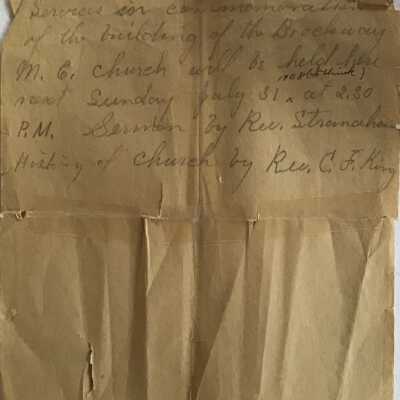 Services in commemoration
of the building of the Brockway
M. E. church will be held here
next Sunday July 31 at 2.30
P.M. Sermon by Rev. Stranahan
History of church by Rev. C. F. King